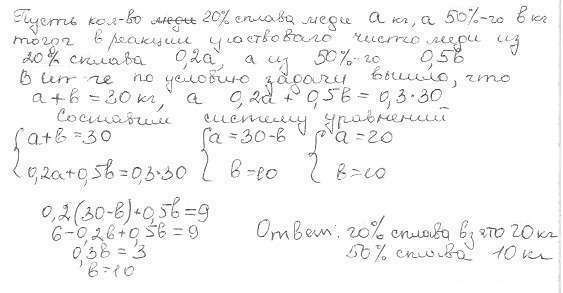 Пусть кол-во меди 20% сплава меди a кг, а 50%-го в кг
тогда в реакции участвовало чисто меди из
20% сплава 0,2a, а из 50%-го 0,5в
В ит-ге по условию задачи вышло, что
a+в=30 кг, а 0,2a+0,5в=0,3·30
Составим систему уравнений
{a+в=30 {a=30-в {a=20
{0,2a+0,5в=0,3·30 {в=10 {в=10
0,2(30-в)+0,5в=9
6-0,2в+0,5в=9
0,3в=3
в=10
Ответ: 20% сплава взято 20 кг
50% сплава 10 кг